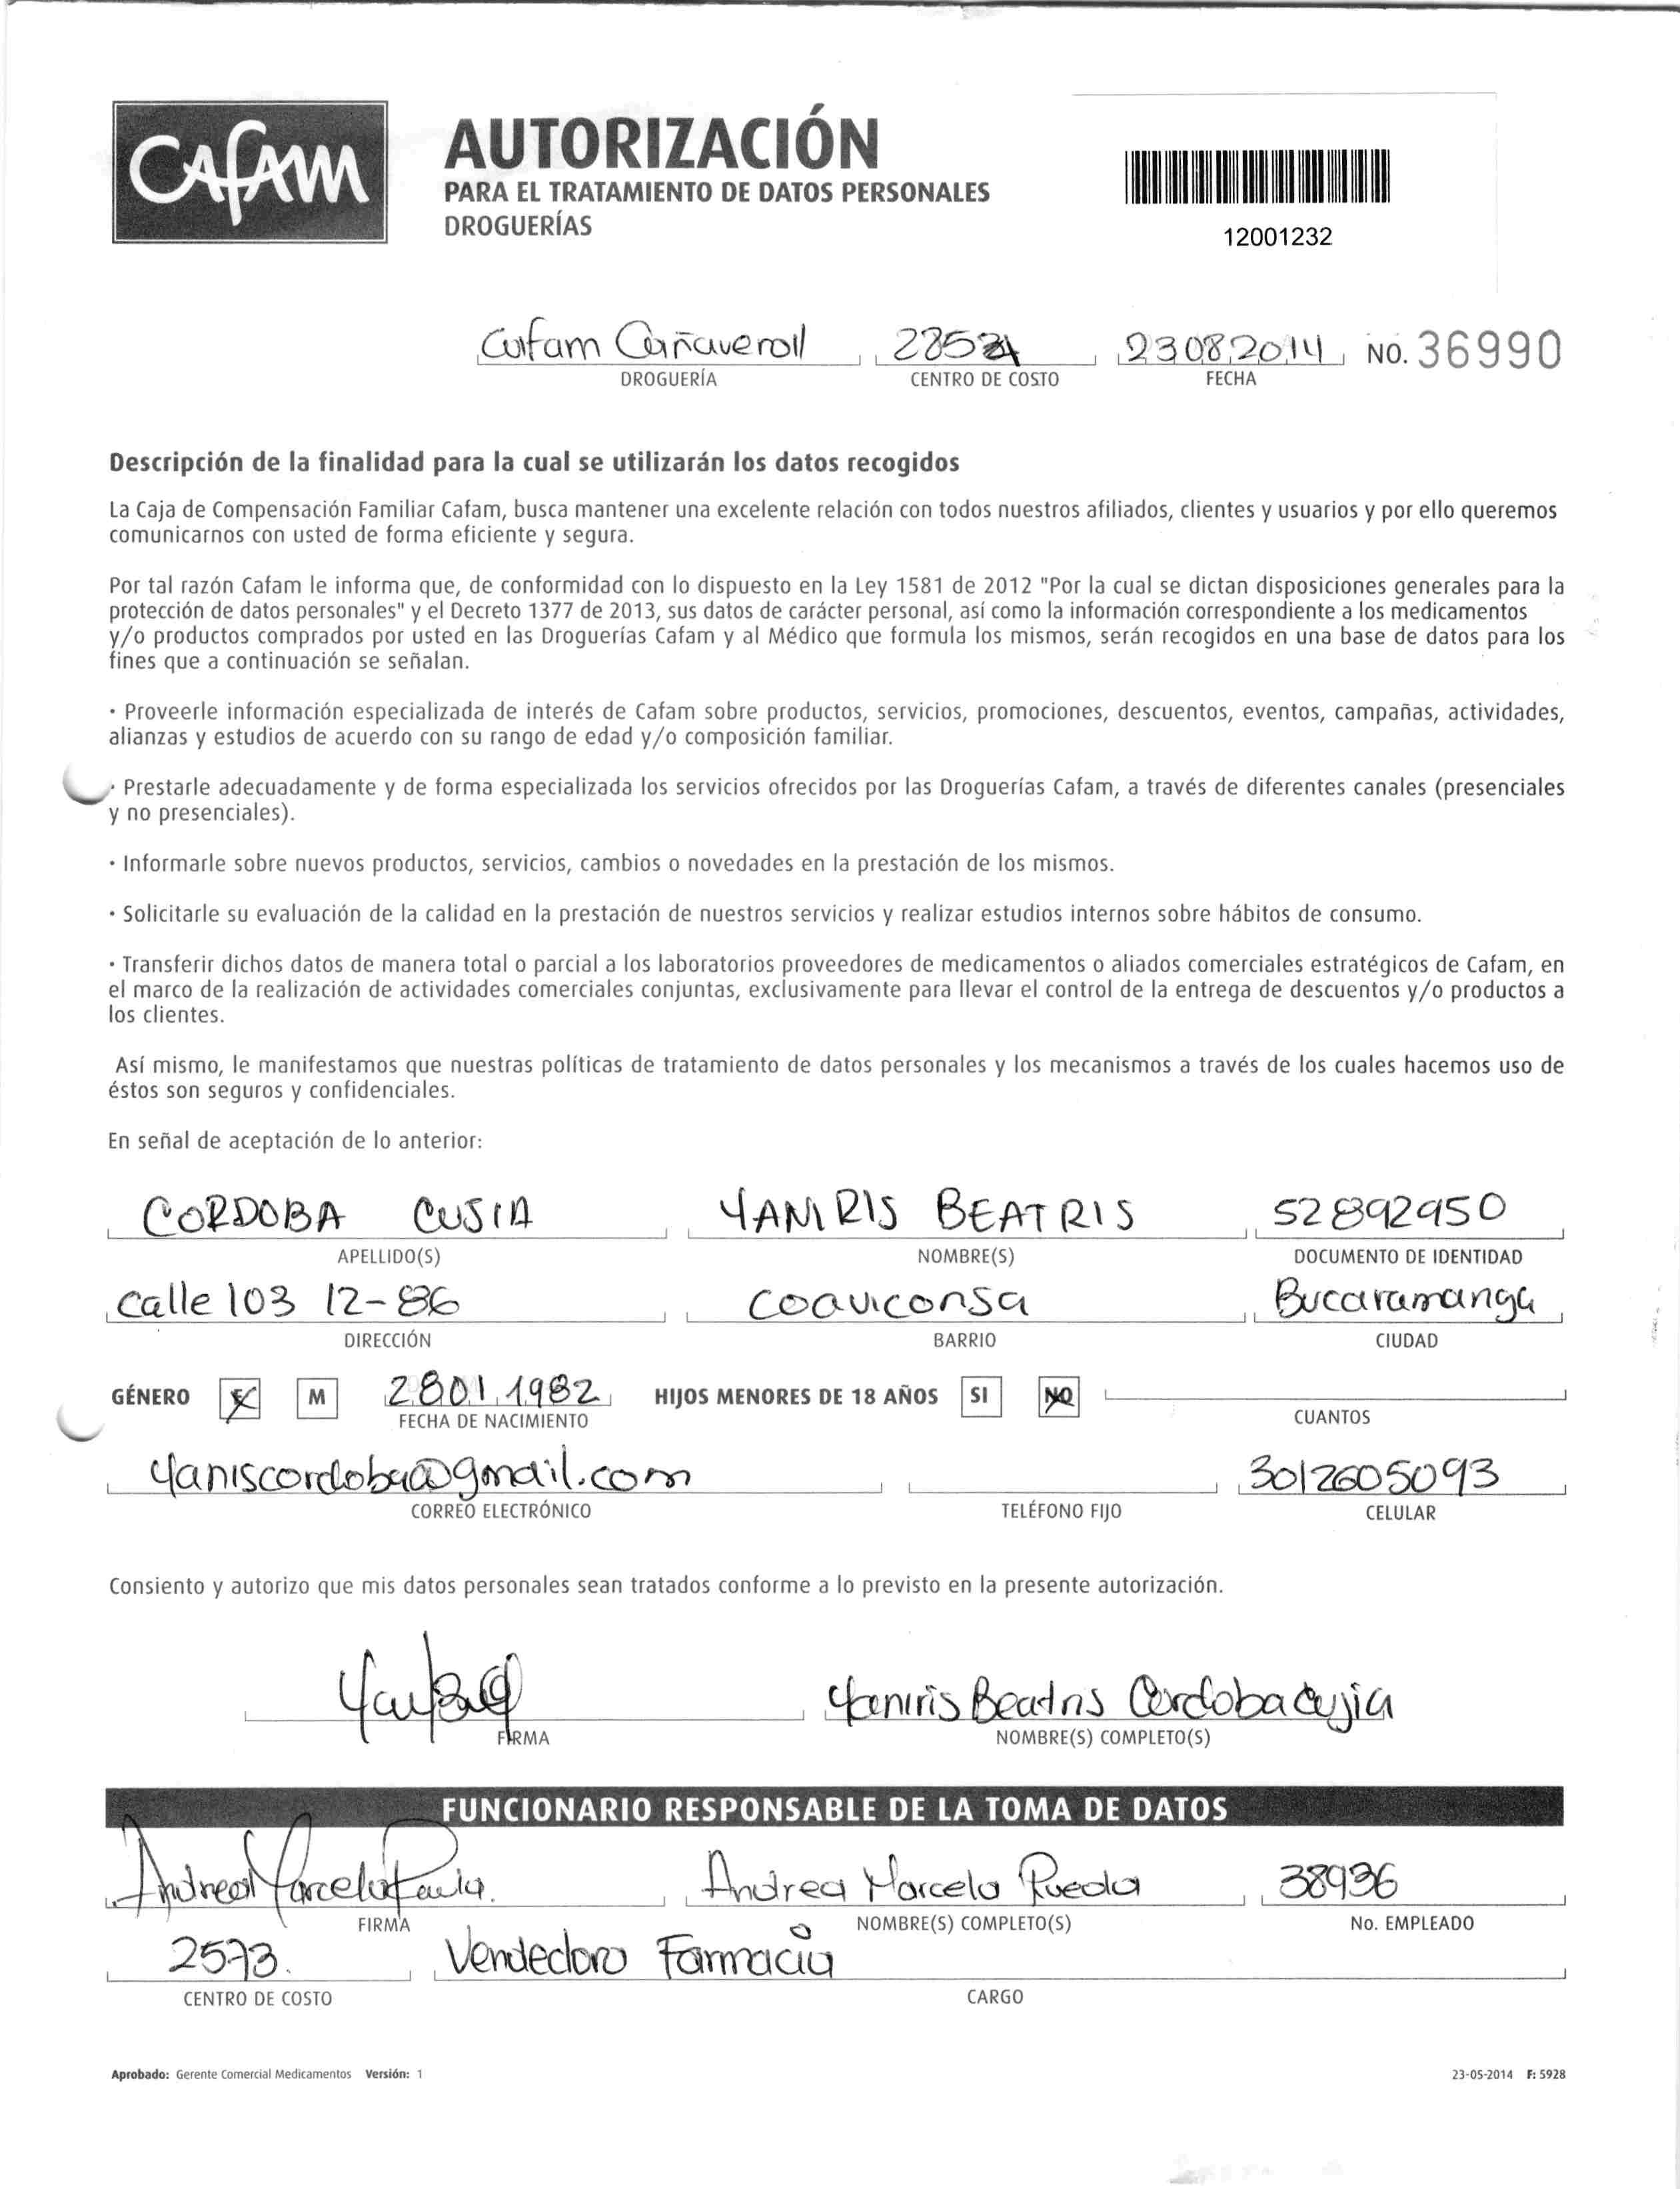 CAFAM
AUTORIZACIÓN
PARA EL TRATAMIENTO DE DATOS PERSONALES
DROGUERÍAS
12001232
Cafam Cañaverall 23082014 NO. 36990
DROGUERÍA CENTRO DE COSTO FECHA
Descripción de la finalidad para la cual se utilizarán los datos recogidos
La Caja de Compensación Familiar Cafam, busca mantener una excelente relación con todos nuestros afiliados, clientes y usuarios y por ello queremos
comunicarnos con usted de forma eficiente y segura.
Por tal razón Cafam le informa que, de conformidad con lo dispuesto en la Ley 1581 de 2012 "Por la cual se dictan disposiciones generales para la
protección de datos personales" y el Decreto 1377 de 2013, sus datos de carácter personal, así como la información correspondiente a los medicamentos
y/o productos comprados por usted en las Droguerías Cafam y al Médico que formula los mismos, serán recogidos en una base de datos para los
fines que a continuación se señalan.
· Proveerle información especializada de interés de Cafam sobre productos, servicios, promociones, descuentos, eventos, campañas, actividades,
alianzas y estudios de acuerdo con su rango de edad y/o composición familiar.
· Prestarle adecuadamente y de forma especializada los servicios ofrecidos por las Droguerías Cafam, a través de diferentes canales (presenciales
y no presenciales).
· Informarle sobre nuevos productos, servicios, cambios o novedades en la prestación de los mismos.
· Solicitarle su evaluación de la calidad en la prestación de nuestros servicios y realizar estudios internos sobre hábitos de consumo.
· Transferir dichos datos de manera total o parcial a los laboratorios proveedores de medicamentos o aliados comerciales estratégicos de Cafam, en
el marco de la realización de actividades comerciales conjuntas, exclusivamente para llevar el control de la entrega de descuentos y/o productos a
los clientes.
Así mismo, le manifestamos que nuestras políticas de tratamiento de datos personales y los mecanismos a través de los cuales hacemos uso de
éstos son seguros y confidenciales.
En señal de aceptación de lo anterior:
CORDOBA CUSIA YANIRIS BEATRIS 52892950
APELLIDO(S) NOMBRE(S) DOCUMENTO DE IDENTIDAD
Calle 103 12-86 Coaviconsa Bucaramanga
DIRECCIÓN BARRIO CIUDAD
GÉNERO F M 28011982 HIJOS MENORES DE 18 AÑOS SI NO
FECHA DE NACIMIENTO CUANTOS
Yaniscordoba@gmail.com 3012605093
CORREO ELECTRÓNICO TELÉFONO FIJO CELULAR
Consiento y autorizo que mis datos personales sean tratados conforme a lo previsto en la presente autorización.
Yaniris Beatris Cordoba Cujia
FIRMA NOMBRE(S) COMPLETO(S)
FUNCIONARIO RESPONSABLE DE LA TOMA DE DATOS
Andrea Marcela Rueda 38936
FIRMA NOMBRE(S) COMPLETO(S) No. EMPLEADO
2573. Vendedora Farmacia
CENTRO DE COSTO CARGO
Aprobado: Gerente Comercial Medicamentos Versión: 1 23-05-2014 F: 5928